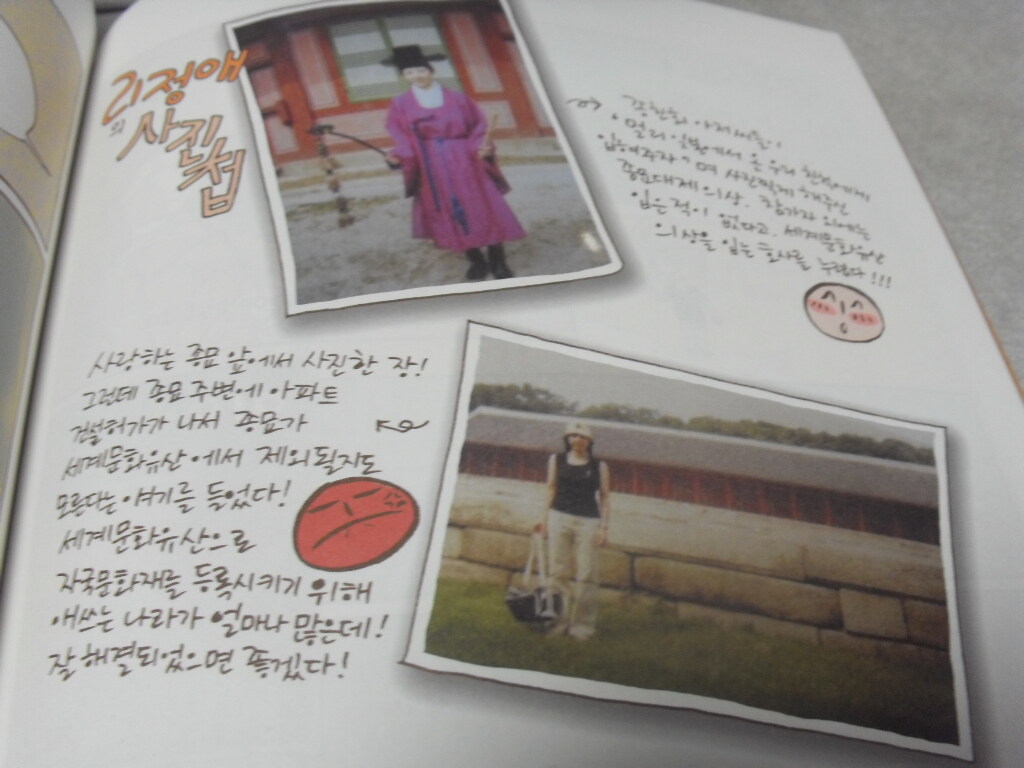 리정애
의 사진첩
"멀리 일본에서 온 우리 친척에게
입혀주자"며 사진찍게 해주신
종묘대제 의상. 참가자 외에는
입은 적이 없다고. 세계문화유산
의상을 입는 호사를 누렸다!!!
사랑하는 종묘 앞에서 사진 한 장!
그런데 종묘 주변에 아파트
건설허가가 나서 종묘가
세계문화유산에서 제외될지도
모른다는 얘기를 들었다!
세계문화유산으로
자국문화재를 등록시키기 위해
애쓰는 나라가 얼마나 많은데!
잘 해결되었으면 좋겠다!